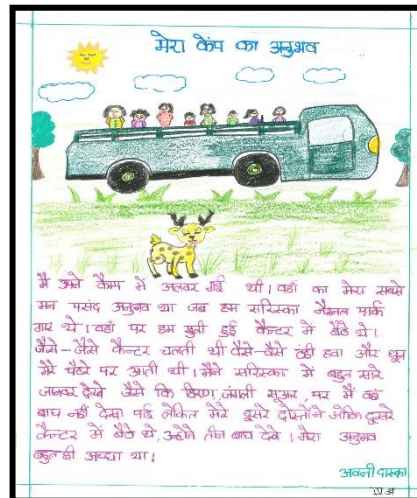 मेरा कैंप का अनुभव
मैं अपने कैम्प में अलवर गई थी। वहाँ का मेरा सबसे
मन पसंद अनुभव था जब हम सरिस्का नैशनल पार्क
गए थे। वहाँ पर हम खुली हुई कैन्टर में बैठे थे।
जैसे-जैसे कैन्टर चलती थी वैसे-वैसे ठंडी हवा और धूल
मेरे चेहरे पर आती थी। मैंने सरिस्का में बहुत सारे
जानवर देखे जैसे कि हिरण, जंगली सूअर, पर मैं वहाँ
बाघ नहीं देख पाई लेकिन मेरे दूसरे दोस्तों ने जोकि दूसरे
कैन्टर में बैठे थे, उन्होंने तीन बाघ देखे। मेरा अनुभव
बहुत ही अच्छा था।
अवनी दास्का